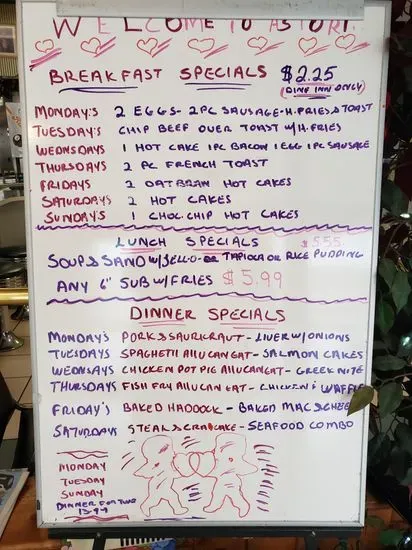 WELCOME TO ASTORI
BREAKFAST SPECIALS $2.25
(DINE INN ONLY)
MONDAY'S 2 EGGS- 2PC SAUSAGE-H.FRIES & TOAST
TUESDAY'S CHIP BEEF OVER TOAST W/H.FRIES
WEDNSDAYS 1 HOT CAKE 1PC BACON 1EGG 1PC SAUSAGE
THURSDAYS 2 PC FRENCH TOAST
FRIDAYS 2 OATBRAN HOT CAKES
SATURDAYS 2 HOT CAKES
SUNDAY'S 1 CHOC.CHIP HOT CAKES
LUNCH SPECIALS $5.55
SOUP & SAND W/JELLO-OR TAPIOCA OR RICE PUDDING
ANY 6" SUB W/FRIES $5.99
DINNER SPECIALS
MONDAY'S PORK & SAURKRAUT - LIVER W/ONIONS
TUESDAYS SPAGHETTI ALLUCANEAT - SALMON CAKES
WEDNSDAYS CHICKEN POT PIE ALLUCANEAT - GREEK NITE
THURSDAYS FISH FRY ALLUCAN EAT - CHICKEN & WAFFLE
FRIDAY'S BAKED HADDOCK - BAKED MAC & CHEE
SATURDAYS STEAK & CRABCAKE - SEAFOOD COMBO
MONDAY
TUESDAY
SUNDAY
DINNER FOR TWO